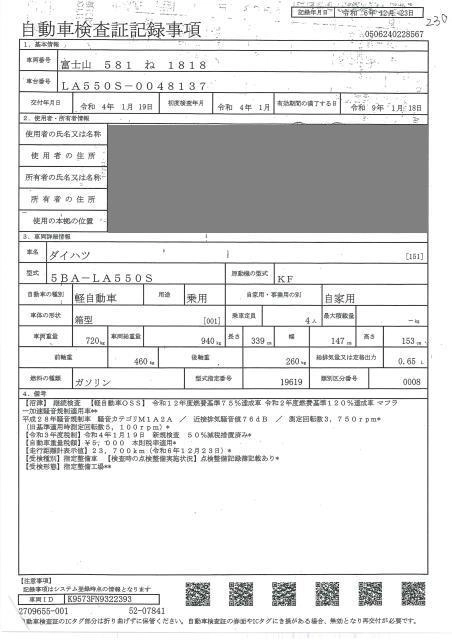 記録年月日 令和 6年12月23日
230
自動車検査証記録事項
0506240228567
1. 基本情報
車両番号 富士山 581 ね 1818
車台番号 LA550S-0048137
交付年月日 令和 4年 1月 19日 初度検査年月 令和 4年 1月 有効期間の満了する日 令和 9年 1月 18日
2. 使用者・所有者情報
使用者の氏名又は名称
使用者の住所
所有者の氏名又は名称
所有者の住所
使用の本拠の位置
3. 車両詳細情報
車名 ダイハツ [151]
型式 5BA-LA550S 原動機の型式 KF
自動車の種別 軽自動車 用途 乗用 自家用・事業用の別 自家用
車体の形状 箱型 [001] 乗車定員 4人 最大積載量 -kg
車両重量 720kg 車両総重量 940kg 長さ 339cm 幅 147cm 高さ 153cm
前軸重 460kg 後軸重 260kg 総排気量又は定格出力 0.65 L
燃料の種類 ガソリン 型式指定番号 19619 類別区分番号 0008
4. 備考
【沼津】 継続検査 【軽自動車OSS】 令和12年度燃費基準75%達成車 令和2年度燃費基準120%達成車 マフラ
ー加速騒音規制適用車**
平成28年騒音規制車 騒音カテゴリM1A2A / 近接排気騒音値76dB / 測定回転数3,750rpm*
(旧基準適用時測定回転数5,100rpm)*
【令和3年度税制】令和4年1月19日 新規検査 50%減税措置済み*
【自動車重量税額】¥5,000 本則税率適用*
【走行距離計表示値】23,700km(令和6年12月23日)*
【受検種別】指定整備車 【検査時の点検整備実施状況】点検整備記録簿記載あり*
【受検形態】指定整備工場**
【注意事項】
記録事項はシステム登録時点の情報となります
車両ID K9573FN9322393
2709655-001 52-07841
自動車検査証のICタグ部分は折り曲げずに保管ください。自動車検査証の券面やICタグにき損がある場合、無効となり再交付が必要です。